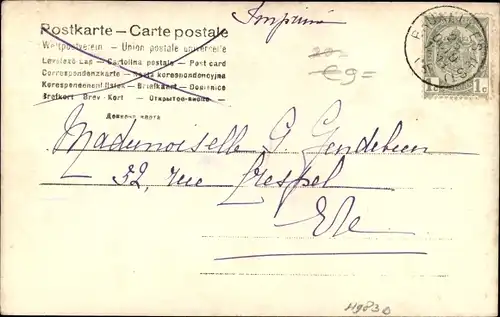 Imprimé
Postkarte – Carte postale
Weltpostverein – Union postale universelle
Levelező-Lap – Cartolina postale – Post card
Correspondenzkarte – Karta korespondencyjna
Korespondenční lístek – Briefkaart – Dopisnice
Brefkort – Brev-Kort – Открытое письмо
20=
€9=
BRUXELLES
1c 1c
Mademoiselle G. Gendebien
32, rue Crespel
E/e
H983D